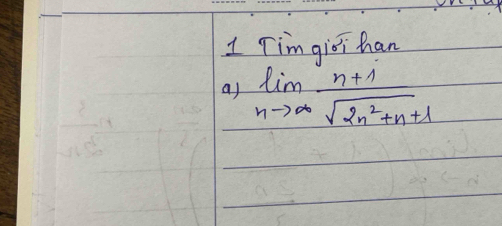 1 Tìm giới hạn
a) lim n→∞ (n+1)/√(2n²+n+1)